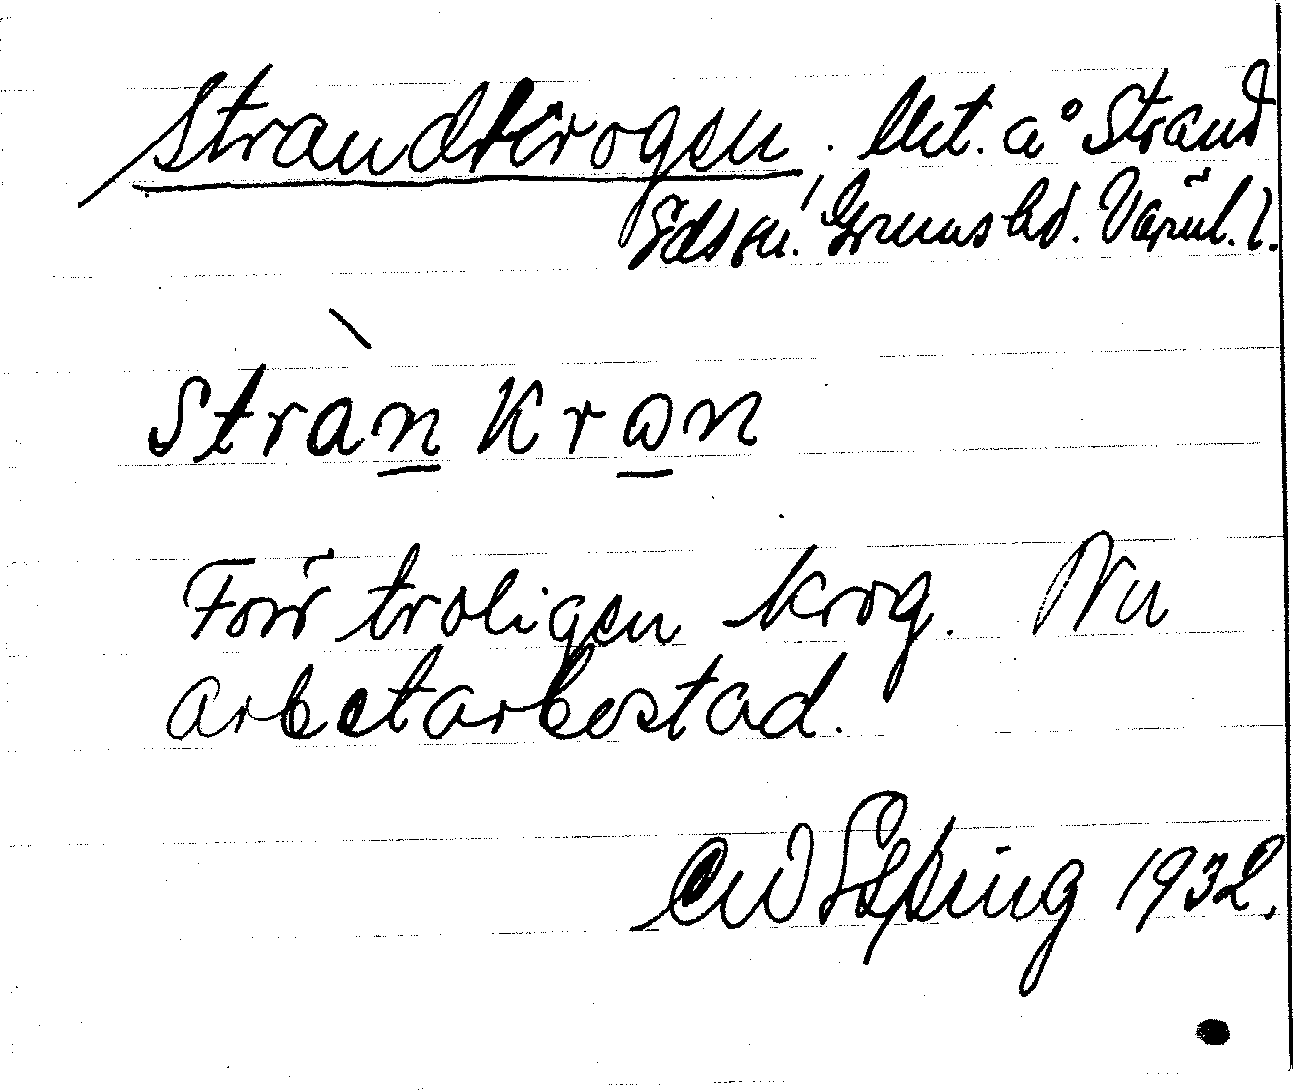 Strandkrogen. Utt. å Strand
Eds sn. Grums hd. Värml. l.
strànkrɷn
Förr troligen krog. Nu
arbetarbostad.
1932.